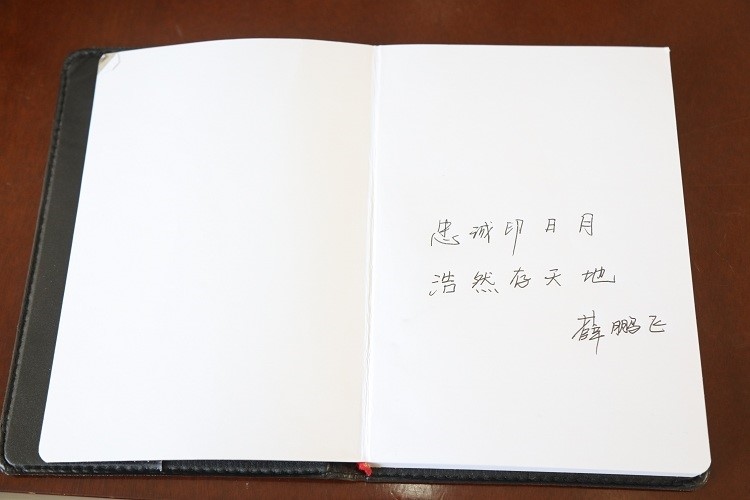 忠诚印日月
浩然存天地
薛鹏飞